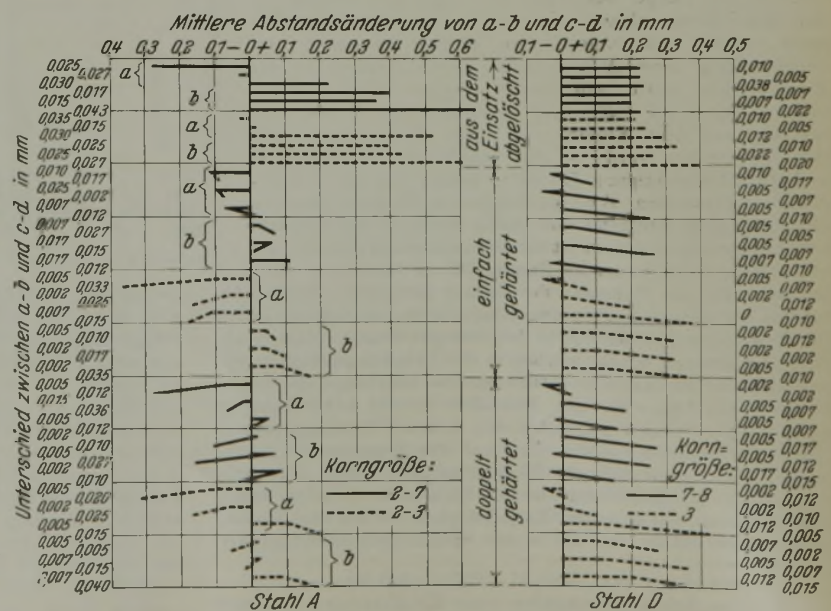 Mittlere Abstandsänderung von a-b und c-d in mm
0,4 0,3 0,2 0,1 - 0 + 0,1 0,2 0,3 0,4 0,5 0,6
0,1 - 0 + 0,1 0,2 0,3 0,4 0,5
Unterschied zwischen a-b und c-d in mm
0,025
0,027
0,030
0,017
0,015
0,043
0,035
0,015
0,030
0,025
0,025
0,027
0,010
0,017
0,025
0,002
0,007
0,012
0,007
0,027
0,017
0,015
0,017
0,012
0,005
0,033
0,002
0,025
0,007
0,015
0,005
0,010
0,002
0,017
0,002
0,035
0,005
0,012
0,015
0,036
0,005
0,012
0,002
0,010
0,005
0,002
0,010
0,005
0,020
0,002
0,025
0,005
0,015
0,005
0,005
0,007
0,015
0,007
0,040
a
b
a
b
a
b
a
b
a
b
a
b
aus dem
Einsatz
abgelöscht
einfach
gehärtet
doppelt
gehärtet
Korngröße:
2-7
2-3
Korn=
größe:
7-8
3
0,010
0,005
0,038
0,007
0,007
0,022
0,010
0,005
0,012
0,010
0,022
0,020
0,010
0,017
0,005
0,007
0,005
0,010
0,005
0,005
0,007
0,007
0,010
0,005
0,007
0,002
0,012
0
0,010
0,002
0,012
0,002
0,002
0,010
0,002
0,002
0,005
0,007
0,005
0,007
0,005
0,017
0,012
0,015
0,002
0,012
0,002
0,010
0,012
0,005
0,007
0,002
0,005
0,007
0,012
0,015
Stahl A
Stahl D